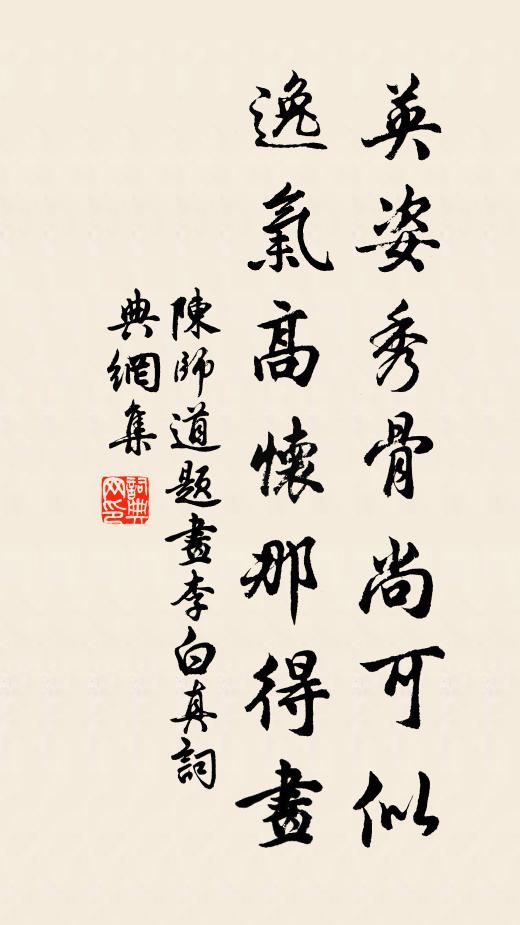 英姿秀骨尚可似
逸氣高懷那得畫
陳師道題畫李白真詞
典網集
詞典
网印